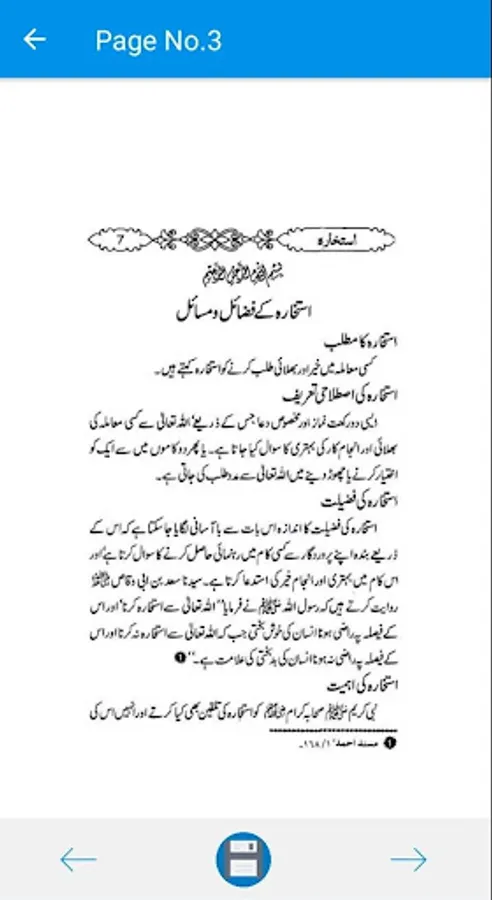 Page No.3
استخارہ 7
بسم اللہ الرحمن الرحیم
استخارہ کے فضائل و مسائل
استخارہ کا مطلب
کسی معاملہ میں خیر اور بھلائی طلب کرنے کو استخارہ کہتے ہیں۔
استخارہ کی اصطلاحی تعریف
ایسی دو رکعت نماز اور مخصوص دعا جس کے ذریعے اللہ تعالیٰ سے کسی معاملہ کی
بھلائی اور انجام کار کی بہتری کا سوال کیا جاتا ہے۔ یا پھر دو کاموں میں سے ایک کو
اختیار کرنے یا چھوڑ دینے میں اللہ تعالیٰ سے مدد طلب کی جاتی ہے۔
استخارہ کی فضیلت
استخارہ کی فضیلت کا اندازہ اس بات سے باآسانی لگایا جا سکتا ہے کہ اس کے
ذریعے بندہ اپنے پروردگار سے کسی کام میں رہنمائی حاصل کرنے کا سوال کرتا ہے اور
اس کام میں بہتری اور انجام خیر کی استدعا کرتا ہے۔ سیدنا سعد بن ابی وقاص رضی اللہ عنہ
روایت کرتے ہیں کہ رسول اللہ ﷺ نے فرمایا "اللہ تعالیٰ سے استخارہ کرنا اور اس
کے فیصلہ پہ راضی ہونا انسان کی خوش بختی جب کہ اللہ تعالیٰ سے استخارہ نہ کرنا اور اس
کے فیصلہ پہ راضی نہ ہونا انسان کی بدبختی کی علامت ہے۔" ❶
استخارہ کی اہمیت
نبی کریم ﷺ صحابہ کرام رضی اللہ عنہم کو استخارہ کی تلقین بھی کیا کرتے اور انہیں اس کی
❶ مسند احمد ۱/۱۶۸۔